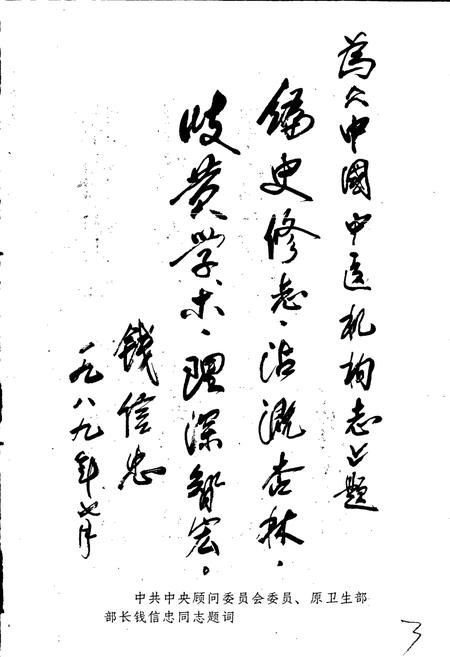 为《中国中医机构志》题
编史修志、沾溉杏林，
岐黄学术、理深智宏。
钱信忠
一九八九年七月
中共中央顾问委员会委员、原卫生部
部长钱信忠同志题词
3